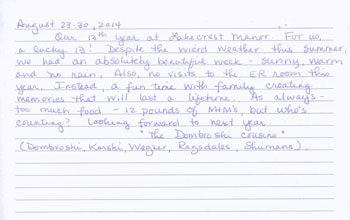 August 23-30, 2014
Our 13th year at Lakecrest Manor. For us,
a lucky 13! Despite the wierd weather this summer,
we had an absolutely beautiful week - sunny, warm
and no rain. Also, no visits to the ER room this
year. Instead, a fun time with family creating
memories that will last a lifetime. As always -
too much food - 12 pounds of NHM's, but who's
counting? Looking forward to next year.
"The Dombroski cousins"
(Dombroski, Karski, Wagner, Ragsdales, Shumans).